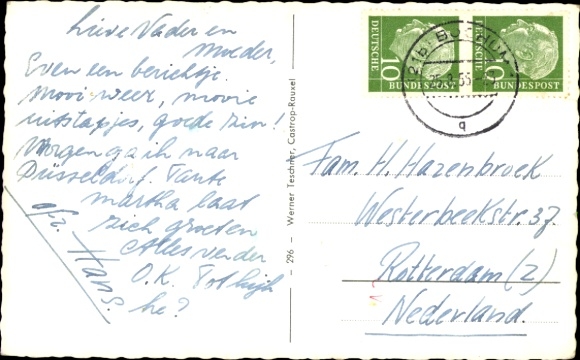 Lieve Vader en
Moeder,
Even een berichtje.
Mooi weer, mooie
uitstapjes, goede zin!
Morgen ga ik naar
Düsseldorf. Tante
Martha laat
zich groeten
Alles verder
O.K. Tot kijk
he?
afz. Hans.
296 — Werner Teschner, Castrop-Rauxel
DEUTSCHE
BUNDESPOST
10
DEUTSCHE
BUNDESPOST
10
BOCHUM
55
q
Fam. H. Hazenbroek
Westerbeekstr. 37
Rotterdam (Z)
Nederland.